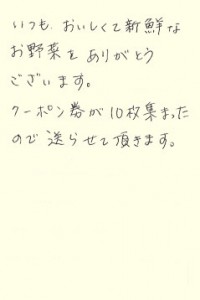 いつも、おいしくて新鮮な
お野菜をありがとう
ございます。
クーポン券が10枚集まった
ので送らせて頂きます。